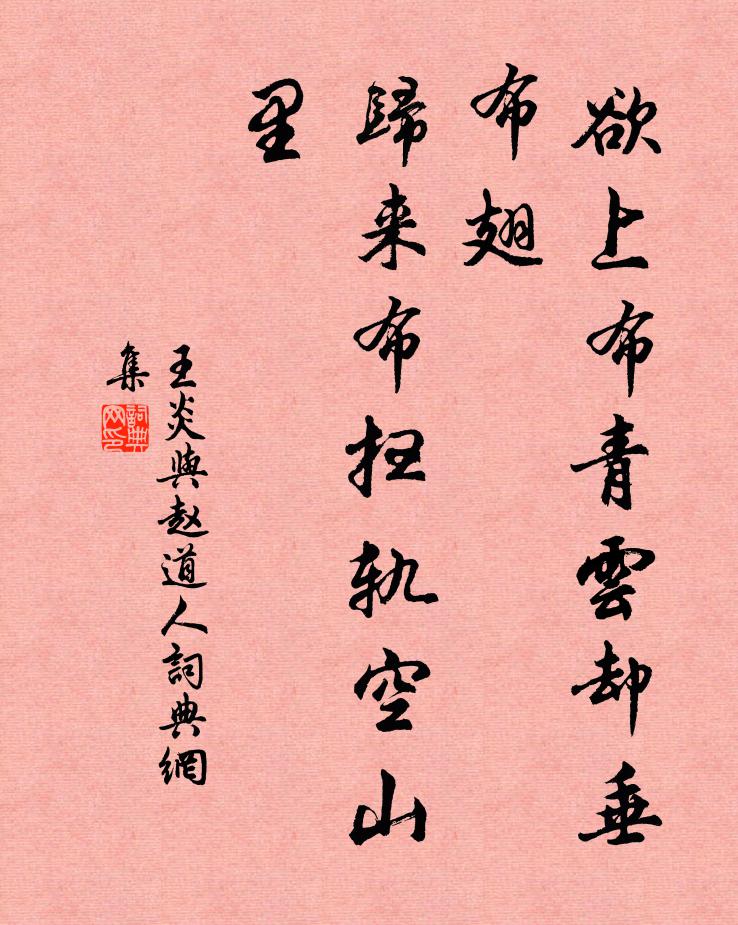 欲上布青雲却垂
布翅
歸来布扫軌空山
里
王炎與赵道人詞典網
集
詞典
网印